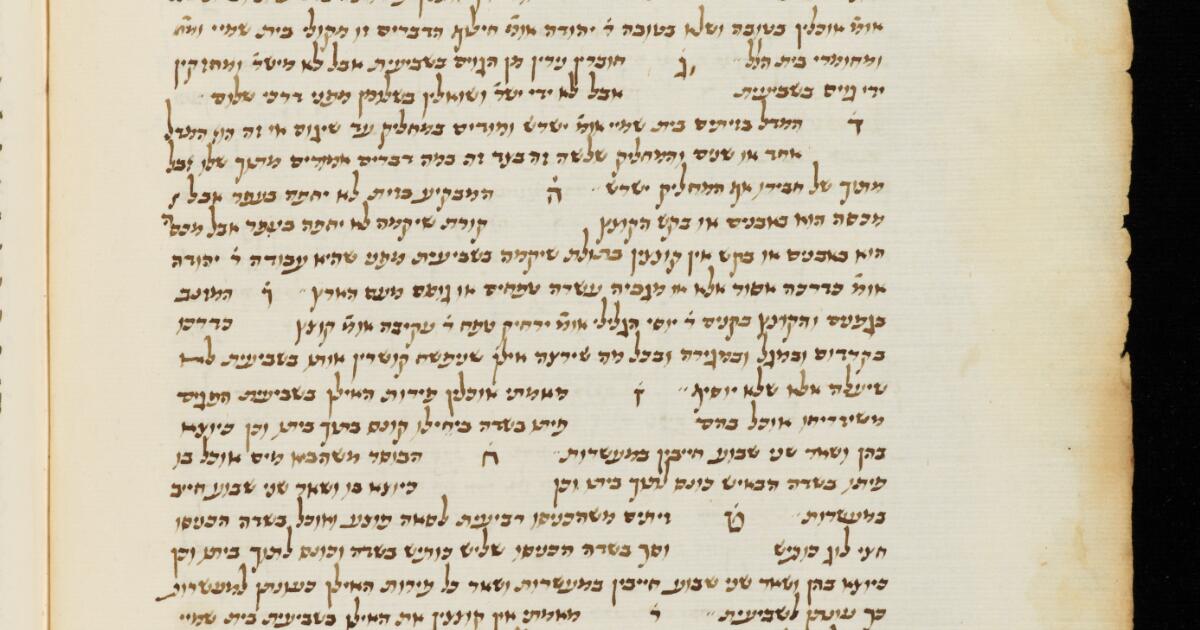 אומ׳ אוכלין בטובה ושלא בטובה ר׳ יהודה אומ׳ חילוף הדברים זו מקולי בית שמיי
ומחומרי בית הלל ג חוכרין נירין מן הגוים בשביעית אבל לא מישר׳ ומחזקין
ידי גוים בשביעית אבל לא ידי ישר׳ ושואלין בשלומן מפני דרכי שלום
ד המדל בזיתים בית שמיי אומ׳ ישרש ומודים במחליק עד שיגום אי זה הוא המדל
אחד או שנים והמחליק שלשה זה בצד זה במה דברים אמורים מתוך שלו אבל
מתוך של חבירו אף המחליק ישרש ה המבקיע בזית לא יחפה בעפר אבל
מכסה הוא באבנים או בקש הקוצץ קורת שיקמה לא יחפה בעפר אבל מכסה
הוא באבנים או בקש אין קוצצין בתולת שיקמה בשביעית מפני שהיא עבודה ר׳ יהודה
אומ׳ כדרכה אסור אלא או מגביה עשרה טפחים או גומם מעם הארץ ו המזנב
בגפנים והקוצץ בקנים ר׳ יוסי הגלילי אומ׳ ירחיק טפח ר׳ עקיבה אומ׳ קוצץ כדרכו
בקרדום ובמגל ובמגירה ובכל מה שירצה אילן שנפשח קושרין אותו בשביעית לא
שיעלה אלא שלא יוסיף ז מאמתי אוכלין פירות האילן בשביעית הפגים
משיזריחו אוכל בהם פיתו בשדה ביחילו כונס בתוך ביתו וכן כיוצא
בהן ושאר שני שבוע חייבין במעשרות ח הבוסר משהבא מים אוכל בו
פיתו בשדה הבאיש כונס לתוך ביתו וכן כיוצא בו ושאר שני שבוע חייב
במעשרות ט זיתים משהכניסו רביעית לסאה פוצע ואוכל בשדה הכניסו
חצי לוג כותיש וסך בשדה הכניסו שליש כותיש בשדה וכונס לתוך ביתו וכן
כיוצא בהן ושאר שני שבוע חייבין במעשרות ושאר כל פירות האילן כעונתן למעשרות
כך עונתן לשביעית י מאמתי אין קוצצין את האילן בשביעית בית שמיי